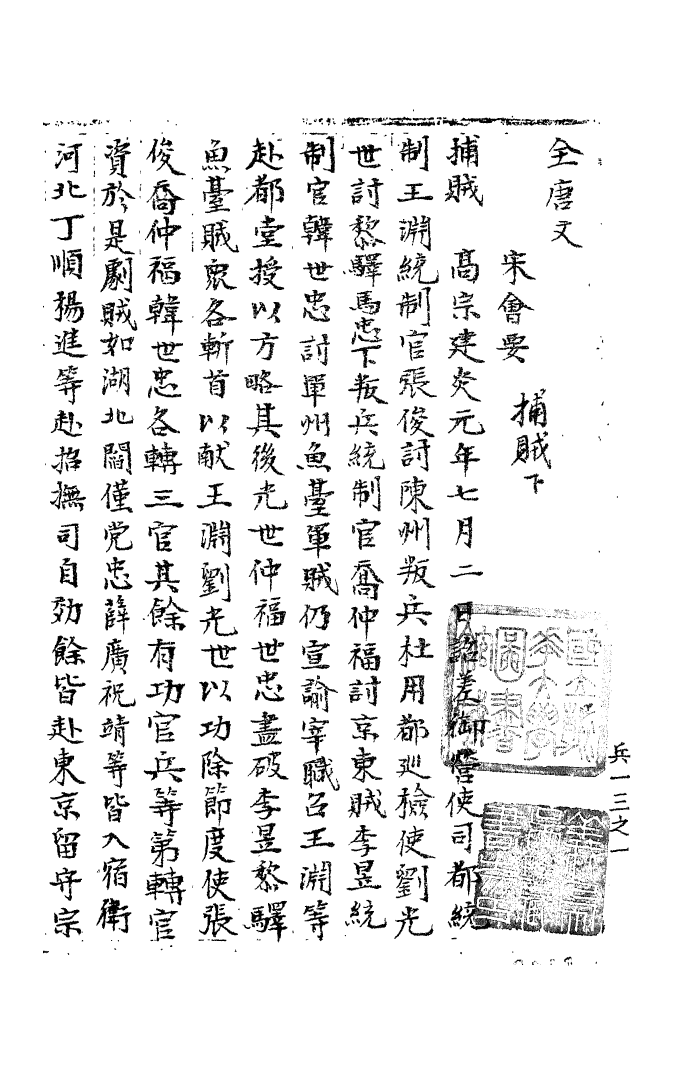 全唐文
宋會要
捕賊下
捕賊　高宗建炎元年七月二日詔差御營使司都統
制王淵統制官張俊討陳州叛兵杜用都廵檢使劉光
世討黎驛馬忠下叛兵統制官喬仲福討京東賊李昱統
制官韓世忠討單州魚臺軍賊仍宣諭宰職召王淵等
赴都堂授以方略其後光世仲福世忠盡破李昱黎驛
魚臺賊衆各斬首以献王淵劉光世以功除節度使張
俊喬仲福韓世忠各轉三官其餘有功官兵等第轉官
資於是劇賊如湖北閻僅党忠薛廣祝靖等皆入宿衛
河北丁順楊進等赴招撫司自効餘皆赴東京留守宗
兵一三之一